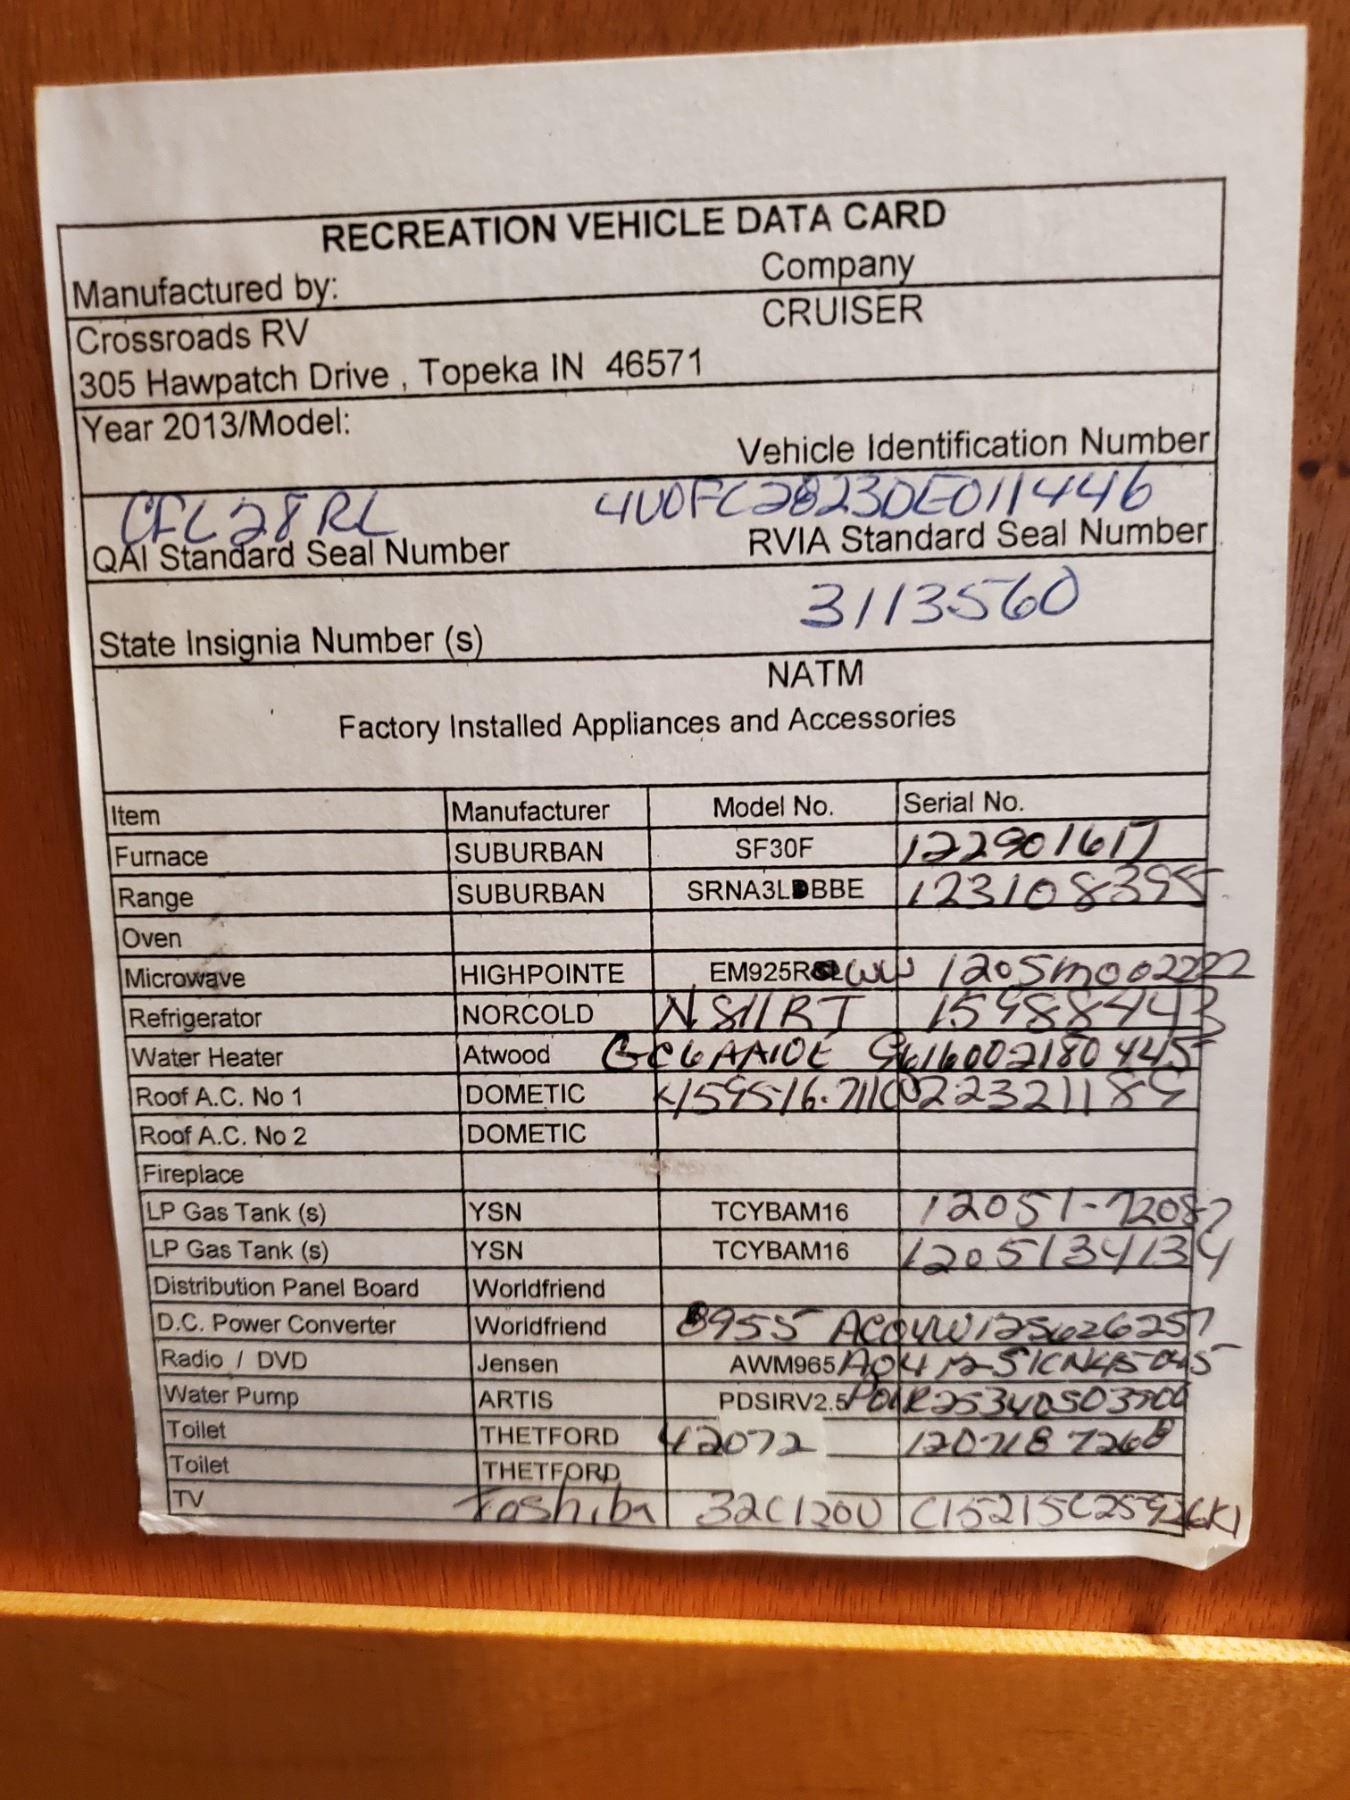 RECREATION VEHICLE DATA CARD
Manufactured by: Company
Crossroads RV CRUISER
305 Hawpatch Drive , Topeka IN 46571
Year 2013/Model:
Vehicle Identification Number
CFL28RL 4V0FC2823DE011446
QAI Standard Seal Number RVIA Standard Seal Number
3113560
State Insignia Number (s)
NATM
Factory Installed Appliances and Accessories
Item Manufacturer Model No. Serial No.
Furnace SUBURBAN SF30F 122901617
Range SUBURBAN SRNA3LDBBE 123108395
Oven
Microwave HIGHPOINTE 1205M002222
Refrigerator NORCOLD N811RT
Water Heater Atwood GC6AA10E
Roof A.C. No 1 DOMETIC
Roof A.C. No 2 DOMETIC
Fireplace
LP Gas Tank (s) YSN TCYBAM16 12051-72087
LP Gas Tank (s) YSN TCYBAM16 1205134134
Distribution Panel Board Worldfriend
D.C. Power Converter Worldfriend 8955
Radio / DVD Jensen AWM965
Water Pump ARTIS PDSIRV2.5
Toilet THETFORD 42072
Toilet THETFORD
TV Toshiba 32C120U